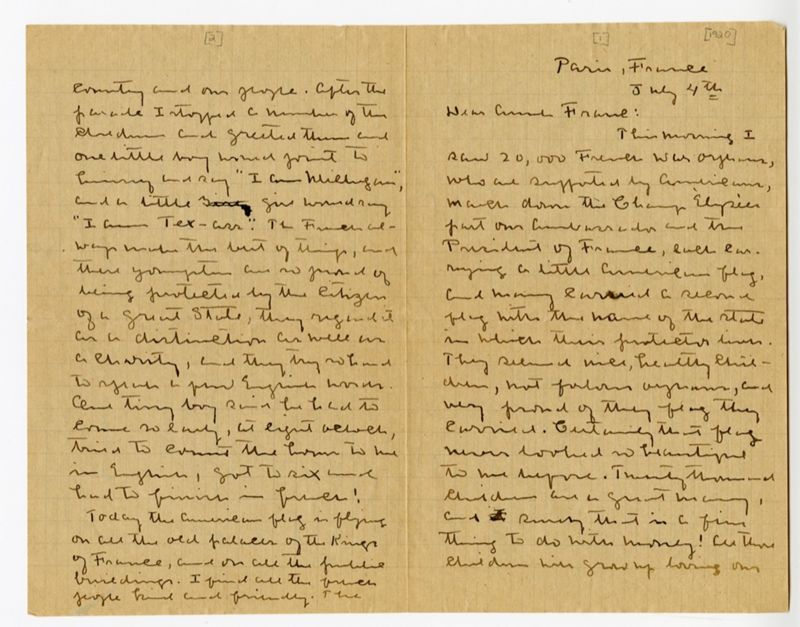 [1]
[1920]
Paris, France
July 4th
Dear Aunt Franc:
This morning I
saw 20,000 French War orphans,
who are supported by Americans,
march down the Champs Élysées
past our Ambassador and the
President of France, each car-
rying a little American flag,
and many carried a second
flag with the name of the state
in which their protector lives.
They seemed nice, healthy chil-
dren, not forlorn orphans, and
very proud of they flag they
carried. Certainly that flag
never looked so beautiful
to me before. Twenty thousand
children are a great many,
and surely that is a fine
thing to do with money! All those
children will grow up loving our
[2]
country and our people. After the
parade I stopped a number of the
children and greeted them and
one little boy would point to
himself and say "I am Michigan",
and a little girl would say
"I am Tex-ass". The French al-
ways make the best of things, and
these youngsters are so proud of
being protected by the citizen
of a great State, they regard it
as a distinction as well as
a charity, and they try so hard
to speak a few English words.
One tiny boy said he had to
come so early, at eight o'clock,
tried to count the hours to me
in English, got to six and
had to finish in French!
Today the American flag is flying
on all the old palaces of the Kings
of France, and on all the public
buildings. I find all the French
people kind and friendly. The